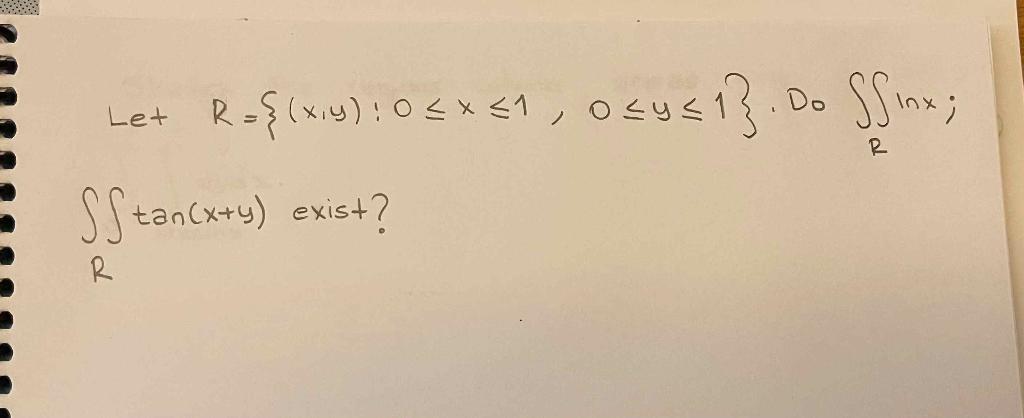 Let R = {(x,y) : 0 ≤ x ≤ 1 , 0 ≤ y ≤ 1}. Do ∬_R ln x ;
∬_R tan(x+y) exist?